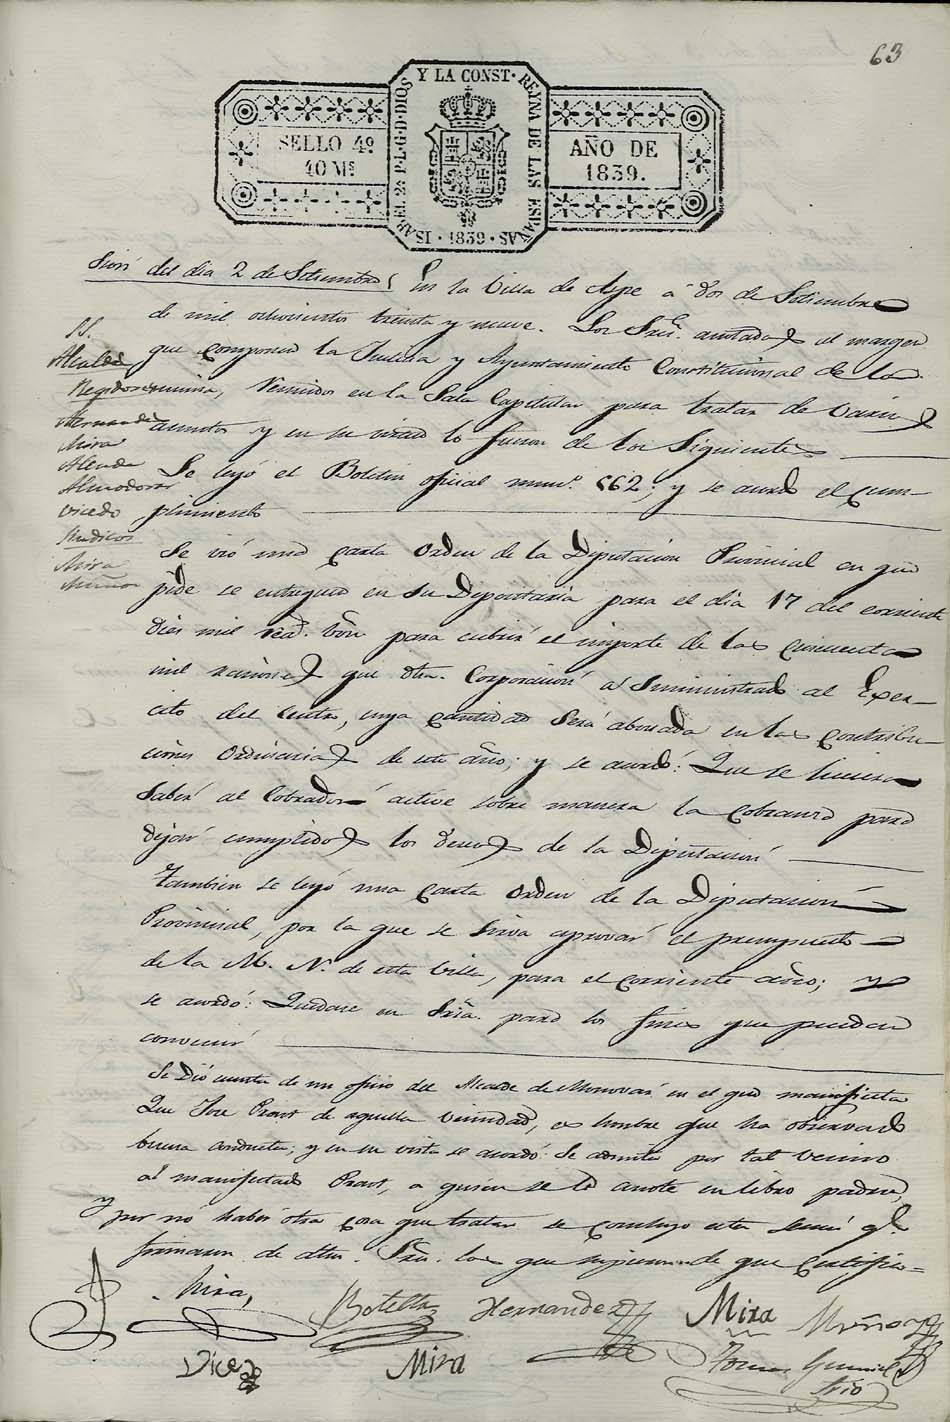 63
Y LA CONST. REYNA DE LAS ESPAÑAS
ISABEL 2ª P.L.G.D.DIOS
SELLO 4º
40 Ms
AÑO DE
1839.
1839
Sesión del dia 2 de Setiembre
En la Villa de Aspe á dos de Setiembre
de mil ochocientos treinta y nueve. Los Sres. anotados al margen
que componen la Justicia y Ayuntamiento Constitucional de la
misma, reunidos en la Sala Capitular para tratar de varios
asuntos y en su virtud lo fueron de los Siguientes
SS.
Alcalde
Regidores
Hernandez
Mira
Alenda
Almodovar
Vicedo
Sindicos
Mira
Muñoz
Se leyó el Boletin oficial numº. 562; y se acordó el cum-
plimiento
Se vió una Carta orden de la Diputacion Provincial en que
pide se entreguen en su Depositaria para el dia 17 del corriente
diez mil rea.s vón para cubrir el importe de las cincuenta
mil raciones que dha. Corporacion á Suministrado al Exer-
cito del Centro, cuya cantidad será abonada en las contribu-
ciones ordinarias de este año; y se acordó: Que se hiciera
saber al Cobrador active sobre manera la cobranza para
dejar cumplidos los deseos de la Diputacion
Tambien se leyó una Carta orden de la Diputacion
Provincial, por la que se sirva aprovar el presupuesto
de la M. N. de esta Villa, para el corriente año; y
se acordó: Quedase en Sria. para los fines que puedan
convenir
Se Dió cuenta de un oficio del Alcalde de Monovar en el que manifiesta
Que Jose Pravt de aquella vecindad, es hombre que ha observado
buena conducta; y en su vista se acordó: Se admita por tal vecino
al manifestado Pravt, a quien se le anote en libro padron,
y por nó haber otra cosa que tratar se concluyó esta sesion qe.
firmaron de dhos. Sres. los que supieron de que Certifico=
Mira,
Botella
Hernandez
Mira
Muñoz
Vicedo
Mira
Srio